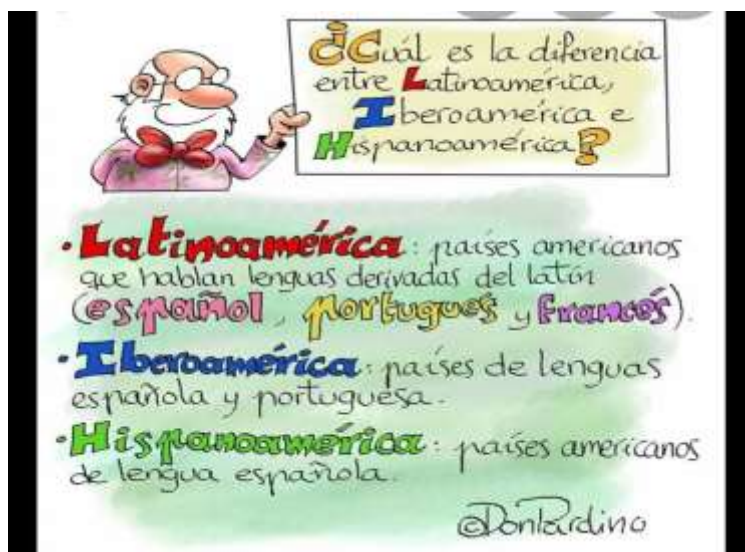 ¿Cuál es la diferencia
entre Latinoamérica,
Iberoamérica e
Hispanoamérica?
· Latinoamérica: países americanos
que hablan lenguas derivadas del latín
(español, portugués y francés).
· Iberoamérica: países de lenguas
española y portuguesa.
· Hispanoamérica: países americanos
de lengua española.
©DonPardino